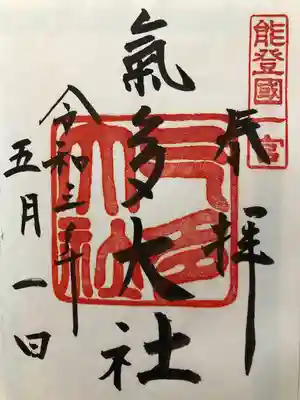 能登國一宮
奉拝
氣多大社
令和三年
五月一日
氣多
大社